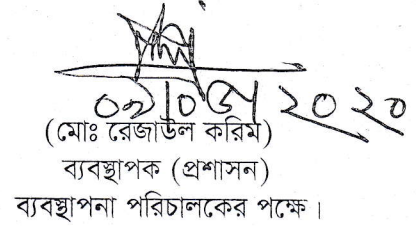 ০৯|০৬|২০২০
(মোঃ রেজাউল করিম)
ব্যবস্থাপক (প্রশাসন)
ব্যবস্থাপনা পরিচালকের পক্ষে।